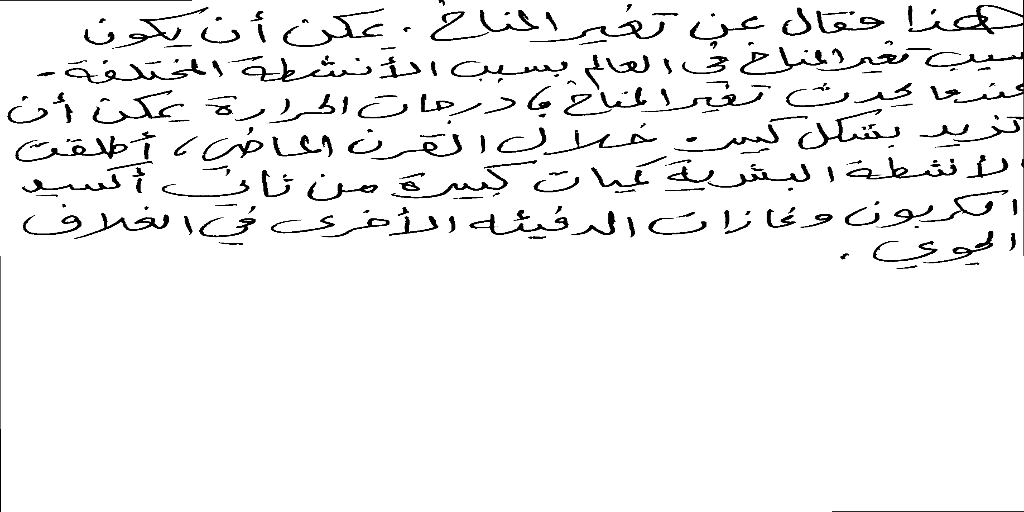 هذا مقال عن تغير المناخ. يمكن أن يكون
سبب تغير المناخ في العالم بسبب الأنشطة المختلفة.
عندما يحدث تغير المناخ، درجات الحرارة يمكن أن
تزيد بشكل كبير. خلال القرن الماضي، أطلقت
الأنشطة البشرية كميات كبيرة من ثاني أكسيد
الكربون وغازات الدفيئه الأخرى في الغلاف
الجوي.